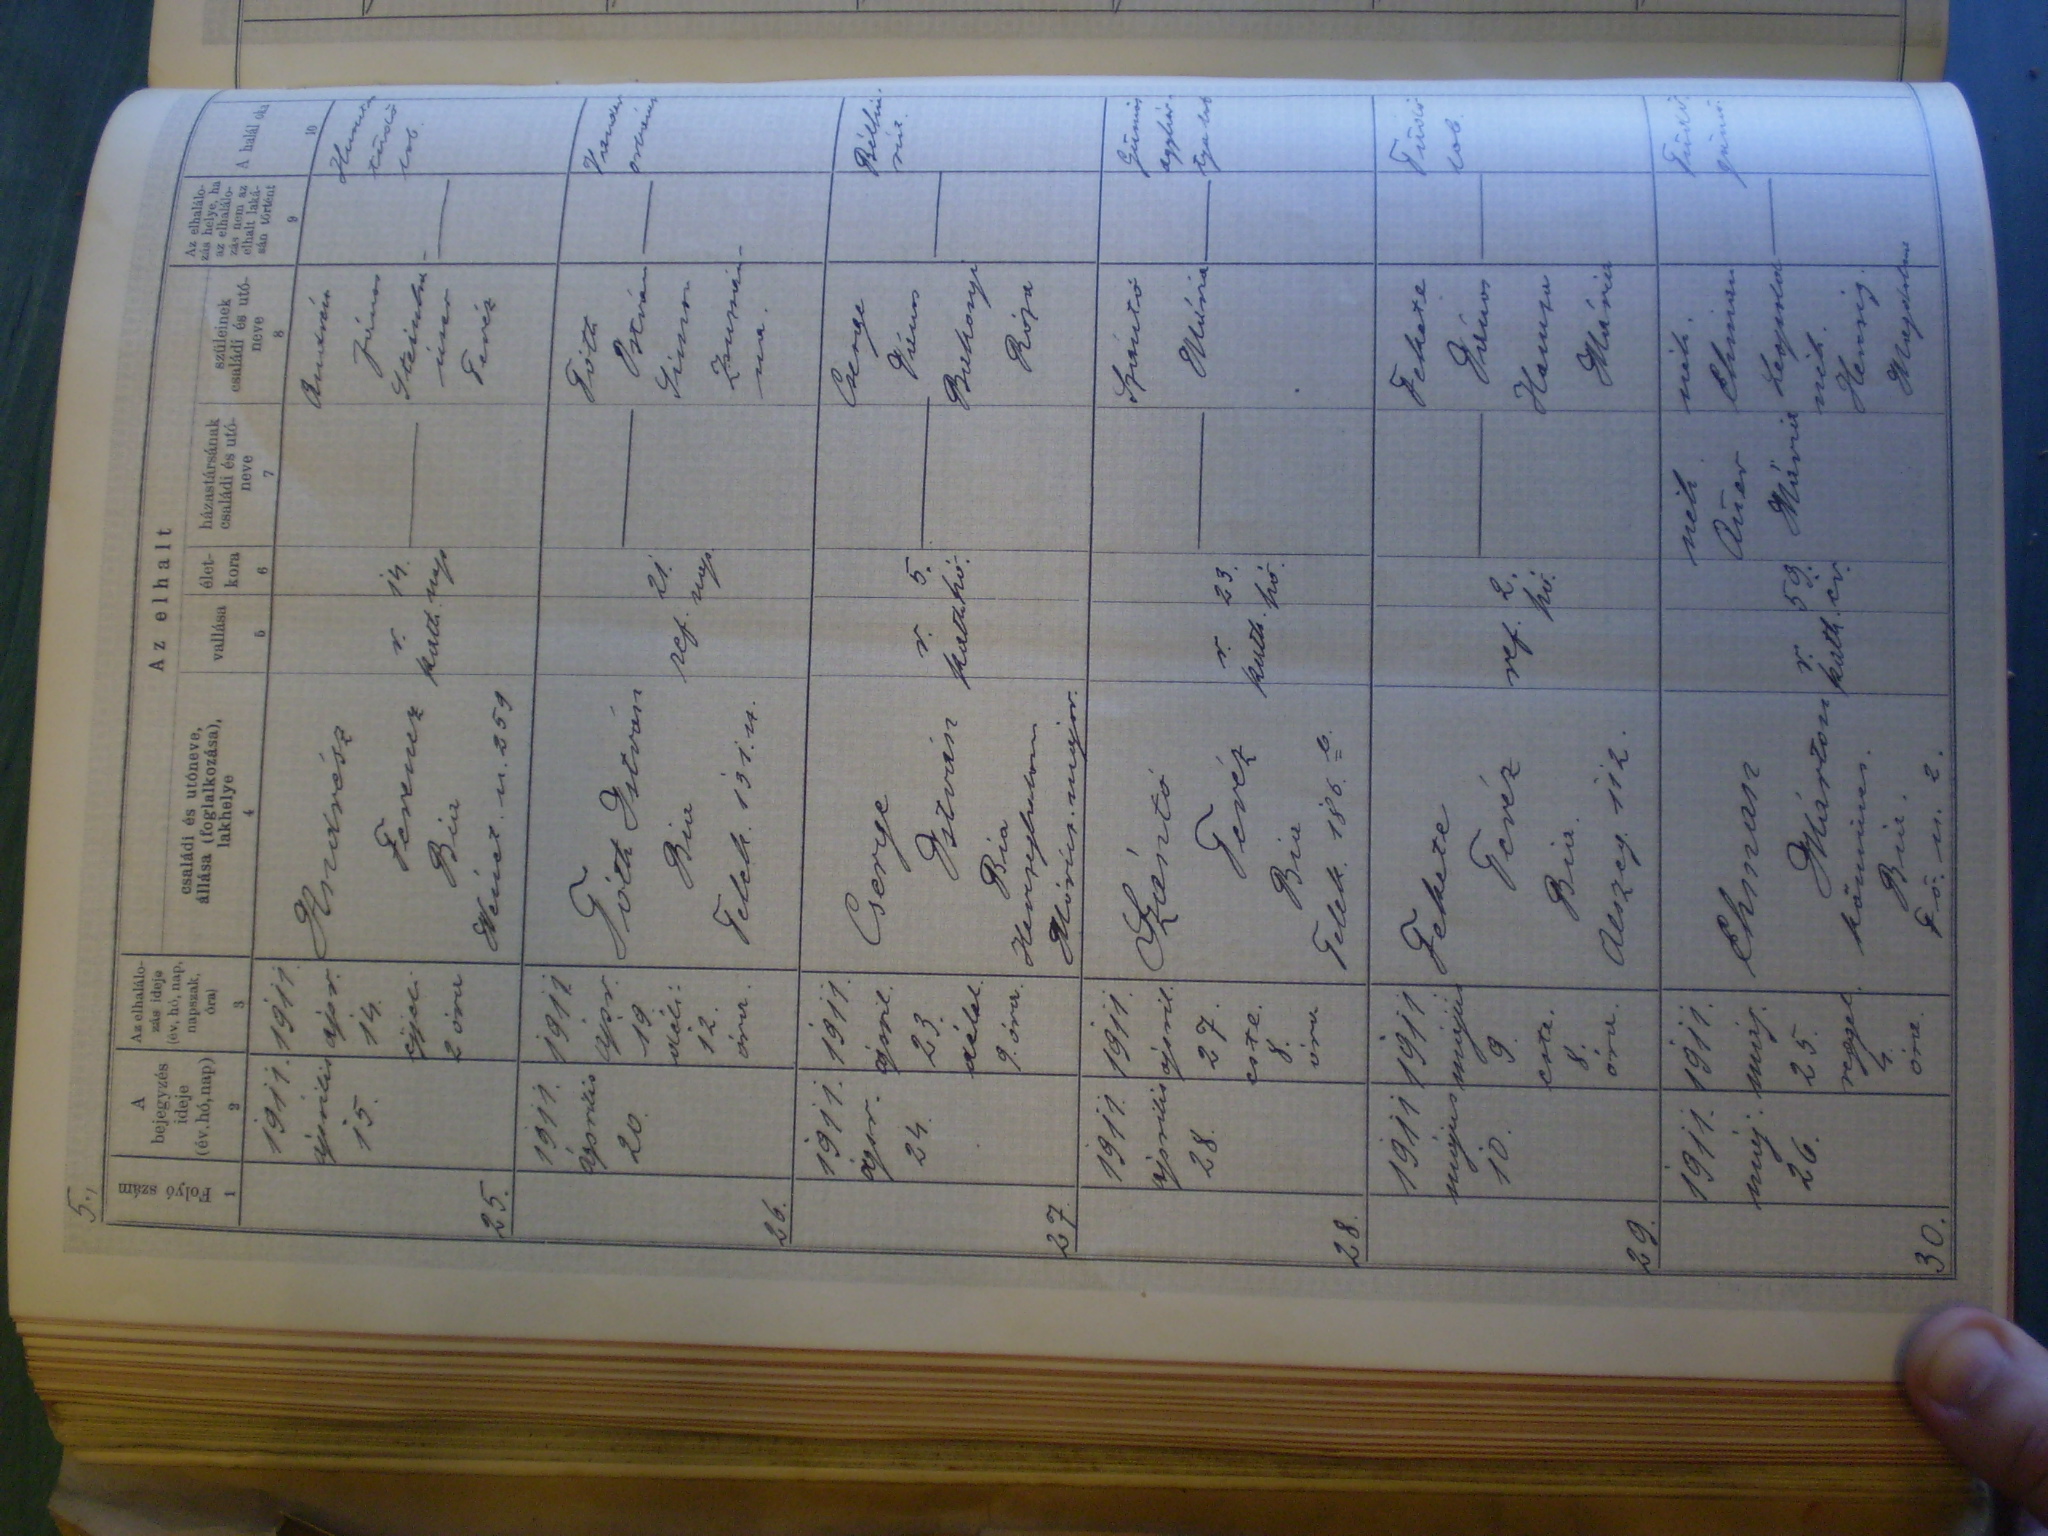 5.,
Folyó szám
A bejegyzés ideje (év, hó, nap)
Az elhalálozás ideje (év, hó, nap, napszak, óra)
Az elhalt
családi és utóneve, állása (foglalkozása), lakhelye
vallása
életkora
házastársának családi és utóneve
szüleinek családi és utóneve
Az elhalálozás helye, ha az elhalálozás nem az elhalt lakásán történt
A halál oka
1
2
3
4
5
6
7
8
9
10
25.
1911.
április
15.
1911.
ápr.
14.
éjjeli
2 óra
András
Ferencz
Bia
Német u. 259
r.
kath.
14.
nap
János
Teréz
tüdő
lob.
26.
1911.
április
20.
1911
ápr.
19.
déli
12.
óra.
Tóth István
Bia
Telek. 131. u.
ref.
21.
nap.
Tóth
István
Simon
Zsuzsán-
na.
27.
1911.
ápr.
24.
1911.
ápril.
23.
délel.
9. óra.
Cserge
István
Bia
Herczeghalom
Mária-major.
r.
kath.
5.
hó.
Cserge
János
Rózsa
Bélhu-
rut.
28.
1911.
április
28.
1911.
ápril.
27.
este.
8.
óra
Szántó
Teréz
Bia
Telek. 186. b.
r.
kath.
23.
hó.
Szántó
Mária
29.
1911
május
10.
1911
május
9.
este.
8.
óra.
Fekete
Teréz
Bia.
Alszeg. 112.
ref.
2.
hó.
Fekete
János
Mária
Tüdő
lob.
30.
1911.
máj.
26.
1911.
máj.
25.
reggel.
4.
óra.
Ehman
Márton
kőmíves.
Bia.
Fő. u. 2.
r.
kath.
59.
év.
néh.
Auer
Mária
néh.
Ehman
néh.
Hennig
Magdolna
Tüdő
gümő.